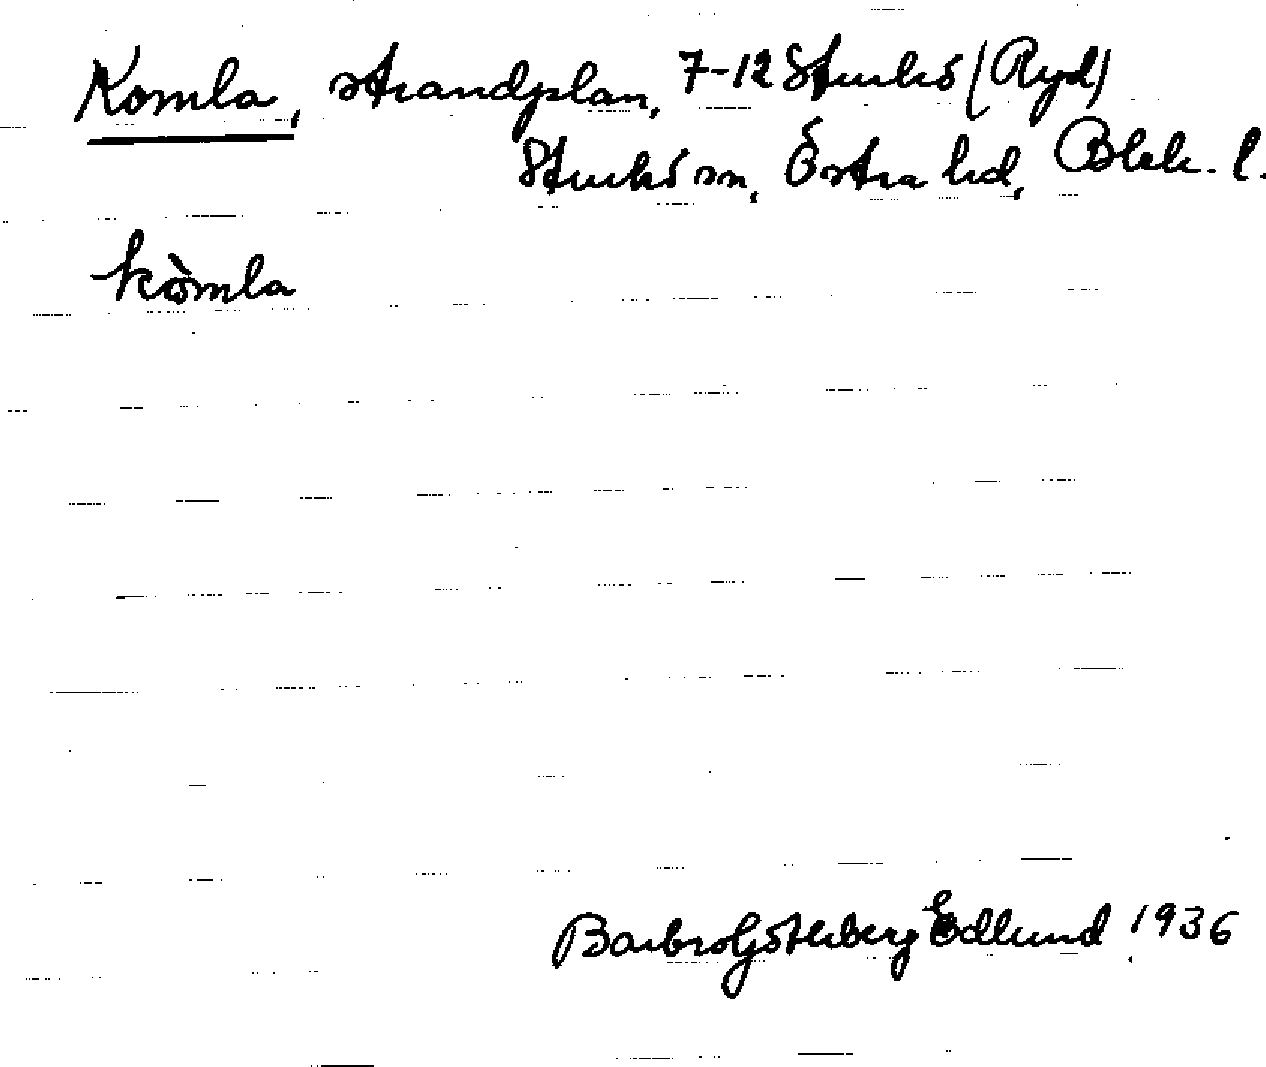 Komla, strandplan, 7-12 Sturkö (Ryd)
Sturkö sn, Östra hd, Blek. l.
kòmla
Barbro Götherberg Edlund, 1936